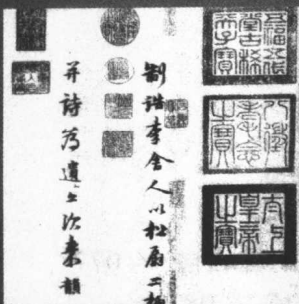 五福五代
堂古稀
天子寶
八徵
耄念
之寶
太上
皇帝
之寶
制誥李舍人以松扇二柄
并詩為遺亦次來韻